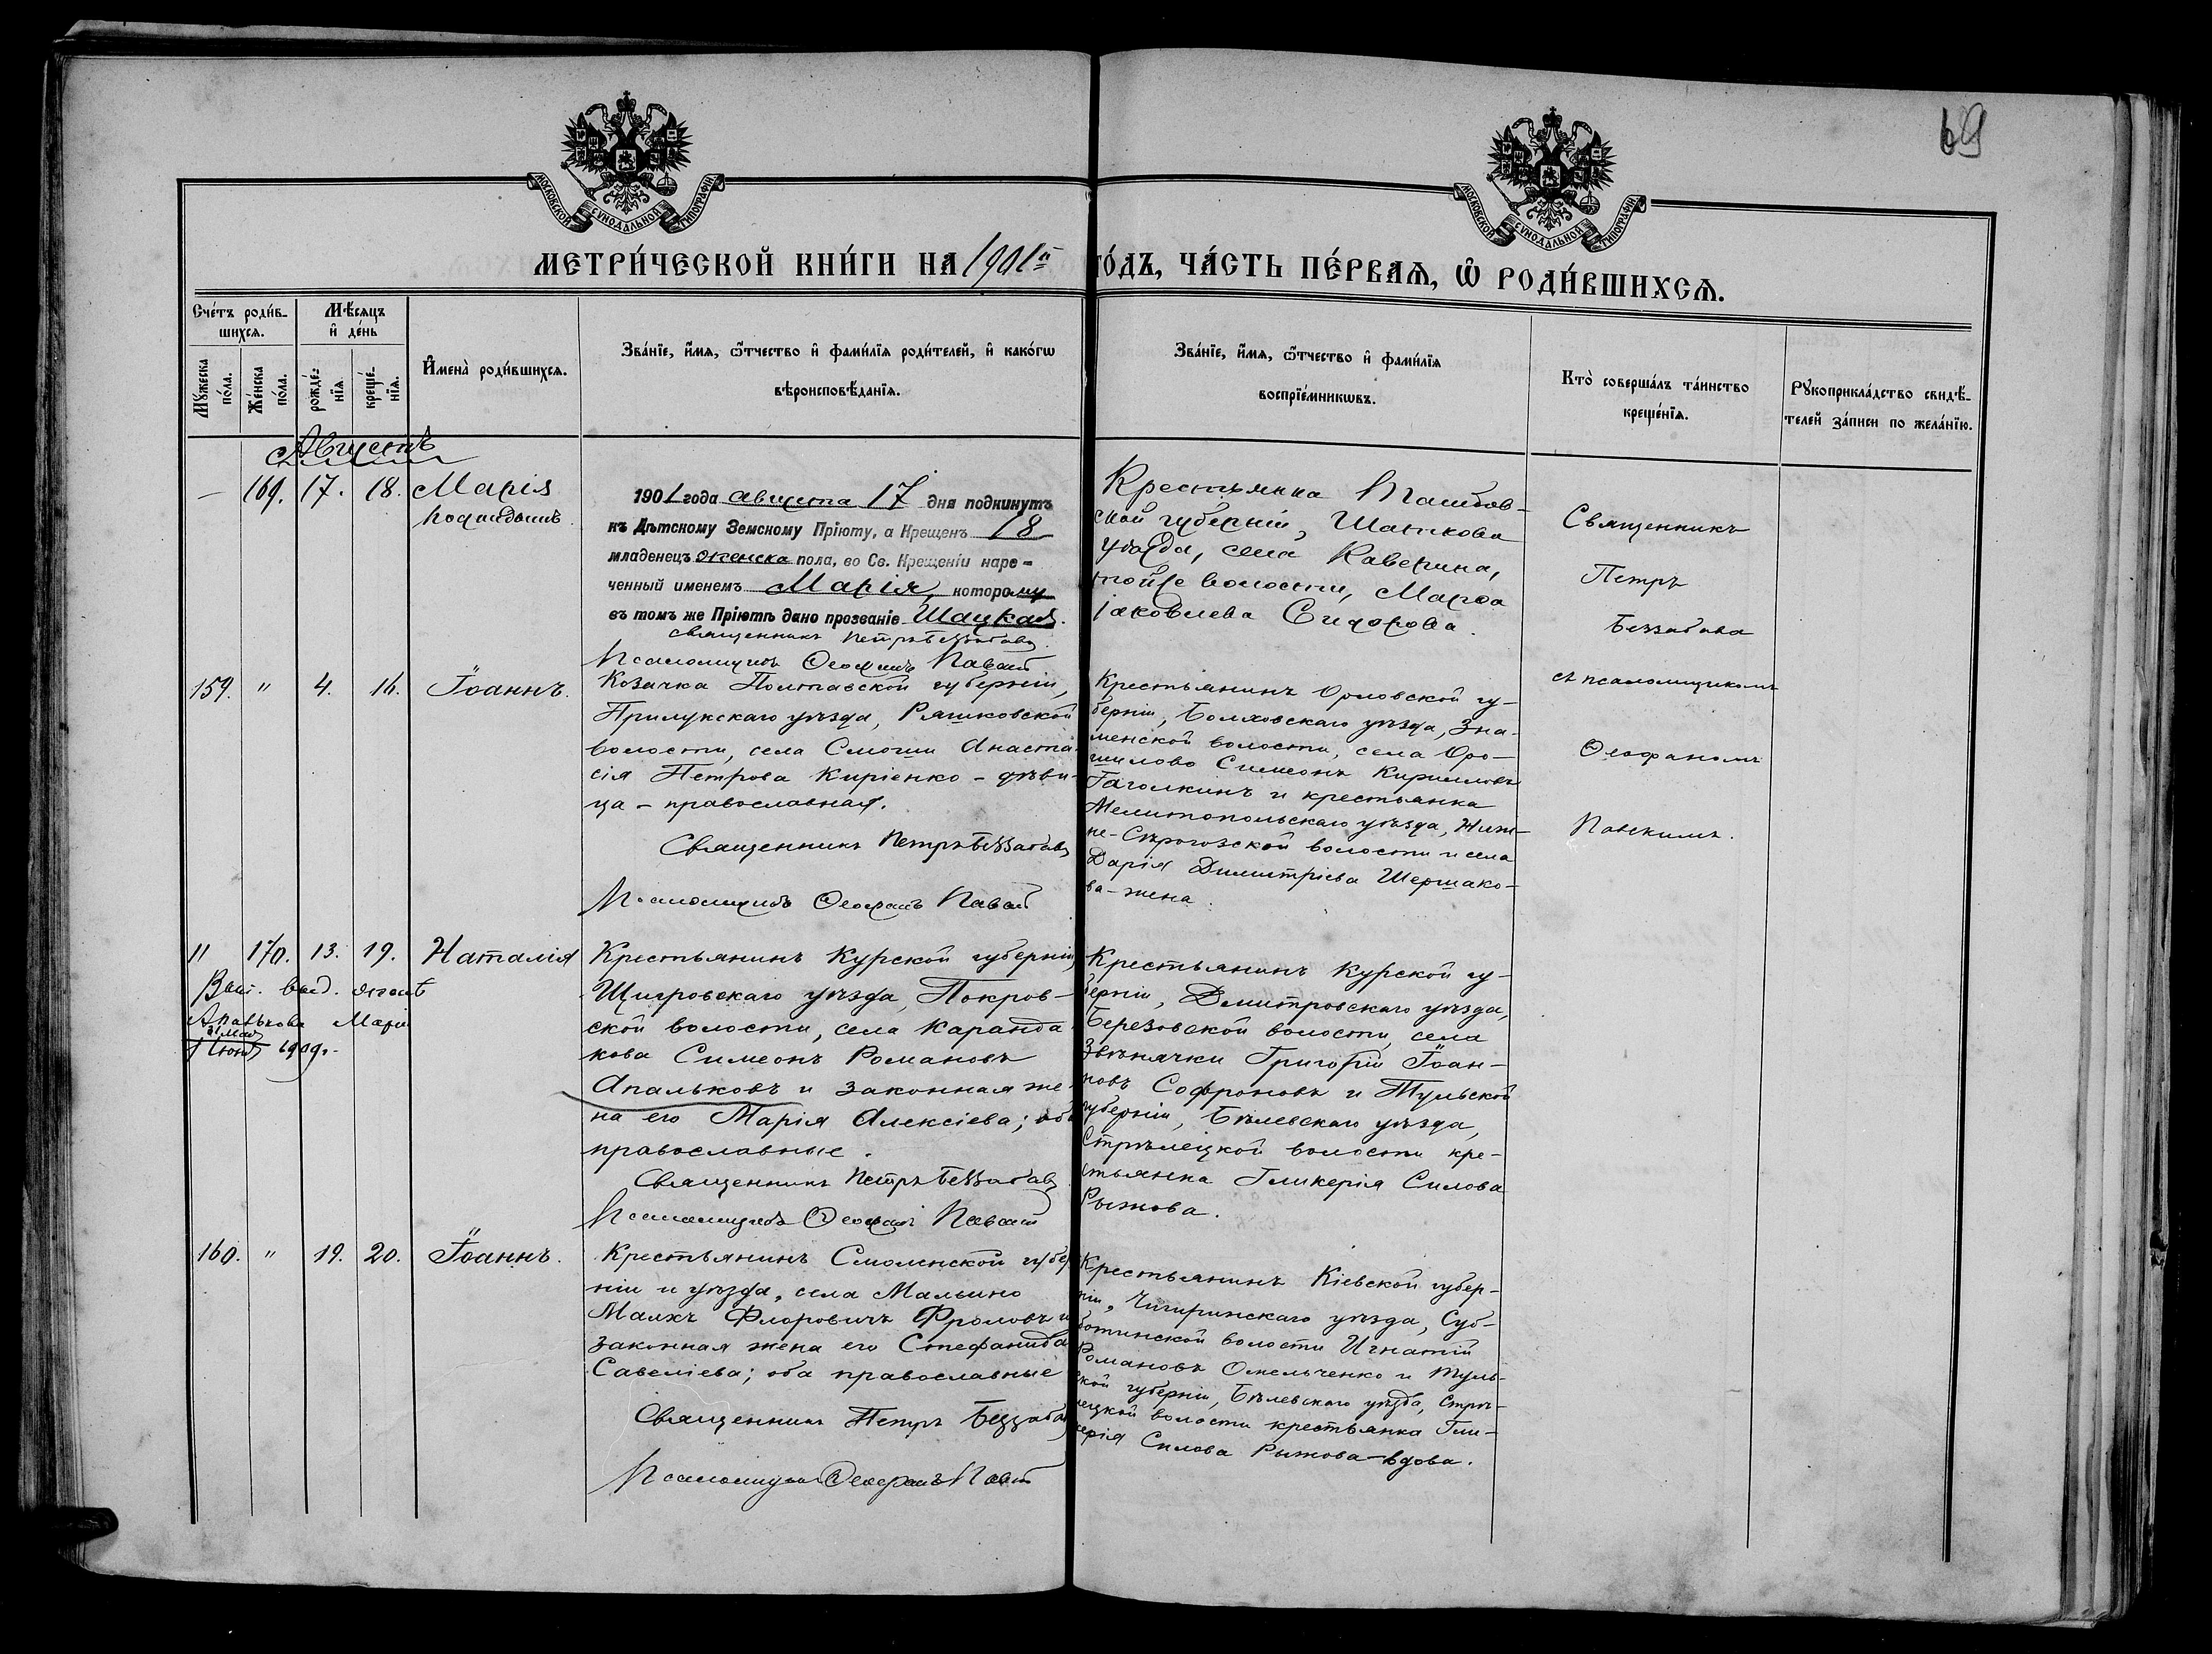 69
МОСКОВСКОЙ СѴНОДАЛЬНОЙ ТИПОГРАФІИ
МОСКОВСКОЙ СѴНОДАЛЬНОЙ ТИПОГРАФІИ
МЕТРИ́ЧЕСКОЙ КНИ́ГИ НА 1901й ГО́ДЪ, ЧА́СТЬ ПЕ́РВАѦ, Ѡ҆ РОДИ́ВШИХСѦ.
Сче́тъ роди́в-
шихся.
Мѣ́сяцъ
и҆ де́нь
Мꙋ́жеска
по́ла.
Же́нска
по́ла.
рожде́-
нїѧ.
креще́-
нїѧ.
И҆мена̀ роди́вшихсѧ.
Зва́нїе, и҆́мѧ, ѻ҆́тчество и҆ фами́лїѧ роди́телей, и҆ како́гѡ
вѣроисповѣ́данїѧ.
Зва́нїе, и҆́мѧ, ѻ҆́тчество и҆ фами́лїѧ
воспрїе́мникѡвъ.
Кто̀ соверша́лъ та́инство
креще́нїѧ.
Рꙋкоприкла́дство свидѣ́-
телей за́писи по жела́нїю.
Августъ
— 169. 17. 18. Марія
подкидышъ
1901 года августа 17 дня подкинутъ
къ Дѣтскому Земскому Пріюту, а Крещенъ 18
младенецъ женска пола, во Св. Крещеніи наре-
ченный именемъ Марія, которому
въ томъ же Пріютѣ дано прозваніе Шацкая.
Священникъ Петръ Беззабава
Псаломщикъ Ѳеофанъ
Крестьянка Тамбов-
ской губерніи, Шацкова
уѣзда, села Каверина,
тойже волости, Марѳа
Іаковлева Сидорова.
Священникъ
Петръ
Беззабава
съ псаломщикомъ
Ѳеофаномъ
159. " 4. 16. Іоаннъ.
Козачка Полтавской губерніи,
Прилукскаго уѣзда, Ряшковской
волости, села Смоши Анаста-
сія Петрова Киріенко - дѣви-
ца - православная.
Священникъ Петръ Беззабава
Псаломщикъ Ѳеофанъ
Крестьянинъ Орловской гу-
берніи, Болховскаго уѣзда, Зна-
менской волости, села
Симеонъ Кирилловъ
и крестьянка
Мелитопольскаго уѣзда, Ниж-
не-Сѣрогозской волости и села
Дарія Димитріева Шершако-
ва - жена.
11 170. 13. 19. Наталія
Апалькова Марія
1909г.
Крестьянинъ Курской губерніи,
Щигровскаго уѣзда, Покров-
ской волости, села Каранда-
кова Симеонъ Романовъ
Апальковъ и законная же-
на его Марія Алексіева; оба
православные.
Священникъ Петръ Беззабава
Псаломщикъ Ѳеофанъ
Крестьянинъ Курской гу-
берніи, Дмитровскаго уѣзда,
Березовской волости, села
Звѣнячки Григорій Іоан-
новъ Софроновъ и Тульской
губерніи, Бѣлевскаго уѣзда,
Стрѣлецкой волости кре-
стьянка Гликерія Силова
Рыжова.
160. " 19. 20. Іоаннъ.
Крестьянинъ Смоленской губер-
ніи и уѣзда, села Мальино
Малхъ Флоровичъ Фроловъ и
законная жена его Стефанида
Савеліева; оба православные
Священникъ Петръ Беззабава
Псаломщикъ Ѳеофанъ
Крестьянинъ Кіевской губер-
ніи, Чигиринскаго уѣзда, Суб-
ботинской волости Игнатій
Романовъ Омельченко и Туль-
ской губерніи, Бѣлевскаго уѣзда, Стрѣ-
лецкой волости крестьянка Гли-
керія Силова Рыжова - вдова.